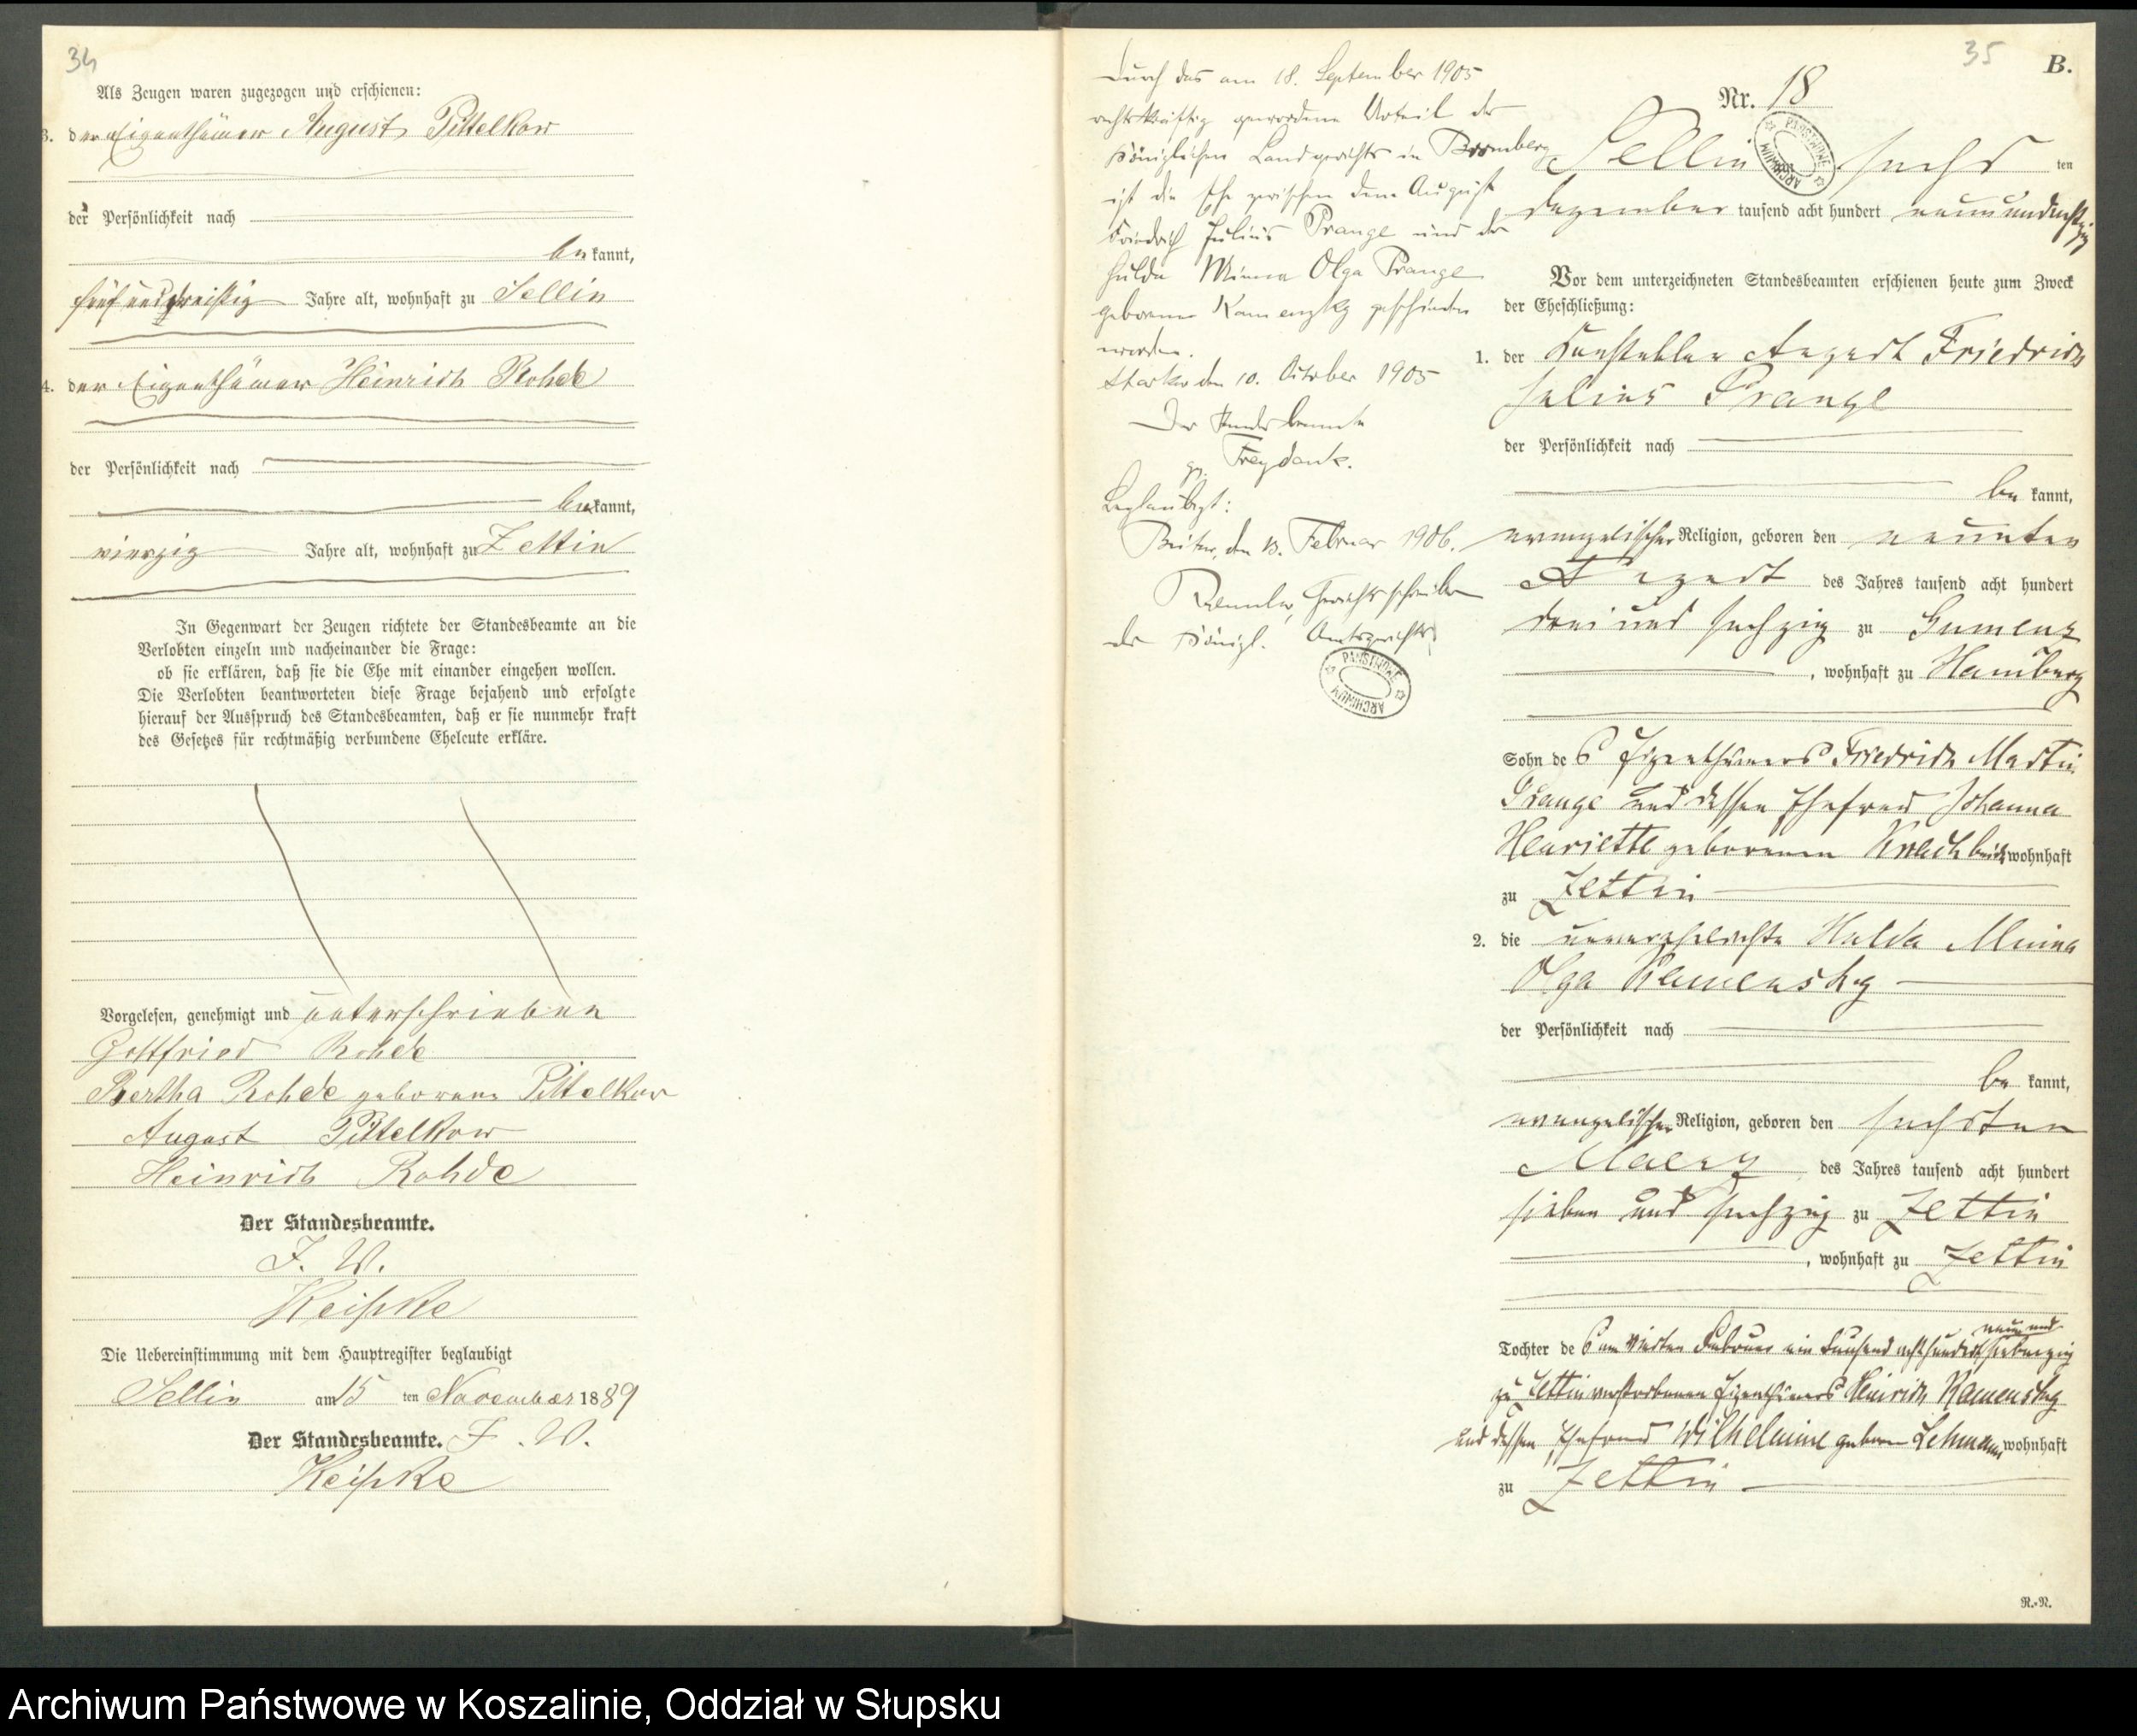 34
Als Zeugen waren zugezogen und erschienen:
3. der Eigenthümer August Pittelkow
der Persönlichkeit nach
be kannt,
fünf und dreißig Jahre alt, wohnhaft zu Sellin
4. der Eigenthümer Heinrich Rohde
der Persönlichkeit nach
be kannt,
vierzig Jahre alt, wohnhaft zu Zettin
In Gegenwart der Zeugen richtete der Standesbeamte an die
Verlobten einzeln und nacheinander die Frage:
ob sie erklären, daß sie die Ehe mit einander eingehen wollen.
Die Verlobten beantworteten diese Frage bejahend und erfolgte
hierauf der Ausspruch des Standesbeamten, daß er sie nunmehr kraft
des Gesetzes für rechtmäßig verbundene Eheleute erkläre.
Vorgelesen, genehmigt und unterschrieben
Gottfried Rohde
Bertha Rohde geborene Pittelkow
August Pittelkow
Heinrich Rohde
Der Standesbeamte.
J. V.
Keipke
Die Uebereinstimmung mit dem Hauptregister beglaubigt
Sellin am 15 ten November 1889
Der Standesbeamte. J. V.
Keipke
Durch das am 18. September 1905
rechtskräftig gewordene Urteil des
Königlichen Landgerichts in Bromberg
ist die Ehe zwischen dem August
Friedrich Julius Prange und der
Hulda Minna Olga Prange
geborene Kamenzky geschieden
worden.
den 10. Oktober 1905
Der Standesbeamte
gz. Freydank.
Beglaubigt:
den 13. Februar 1906.
Gerichtsschreiber
des Königl. Amtsgerichts
PAŃSTWOWE
ARCHIWUM
35
B.
Nr. 18
PAŃSTWOWE
ARCHIWUM
Sellin am sechs ten
Dezember tausend acht hundert neun und achtzig
Vor dem unterzeichneten Standesbeamten erschienen heute zum Zweck
der Eheschließung:
1. der Konstabler August Friedrich
Julius Prange
der Persönlichkeit nach
be kannt,
evangelischer Religion, geboren den neunten
August des Jahres tausend acht hundert
drei und sechzig zu Gumenz
, wohnhaft zu Hamburg
Sohn de s Eigenthümers Friedrich Martin
Prange und dessen Ehefrau Johanna
Henriette geborenen wohnhaft
zu Zettin
2. die unverehelichte Hulda Minna
Olga Kamensky
der Persönlichkeit nach
be kannt,
evangelischer Religion, geboren den sechsten
Maerz des Jahres tausend acht hundert
sieben und sechzig zu Zettin
, wohnhaft zu Zettin
neun und
Tochter de s am vierten Februar ein tausend achthundert siebenzig
zu Zettin verstorbenen Eigenthümers Heinrich Kamensky
und dessen Ehefrau Wilhelmine geboren Lehmann wohnhaft
zu Zettin
R.-N.
Archiwum Państwowe w Koszalinie, Oddział w Słupsku